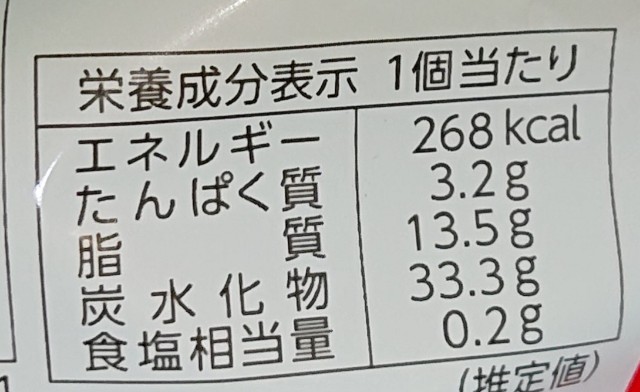 栄養成分表示 1個当たり
エネルギー 268kcal
たんぱく質 3.2g
脂質 13.5g
炭水化物 33.3g
食塩相当量 0.2g
(推定値)